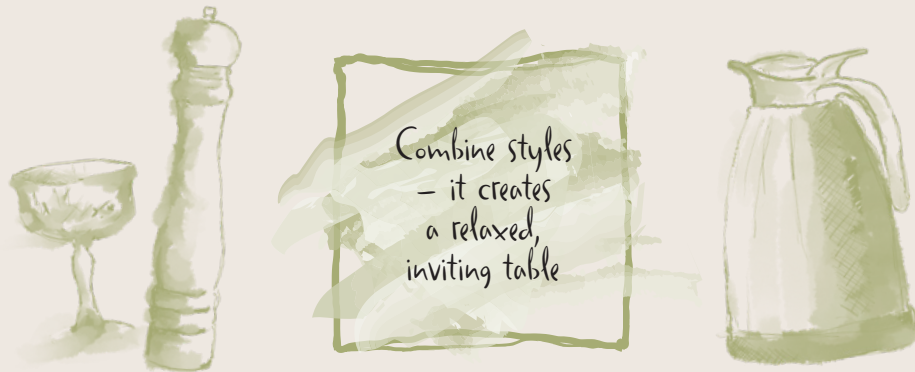 Combine styles
– it creates
a relaxed,
inviting table